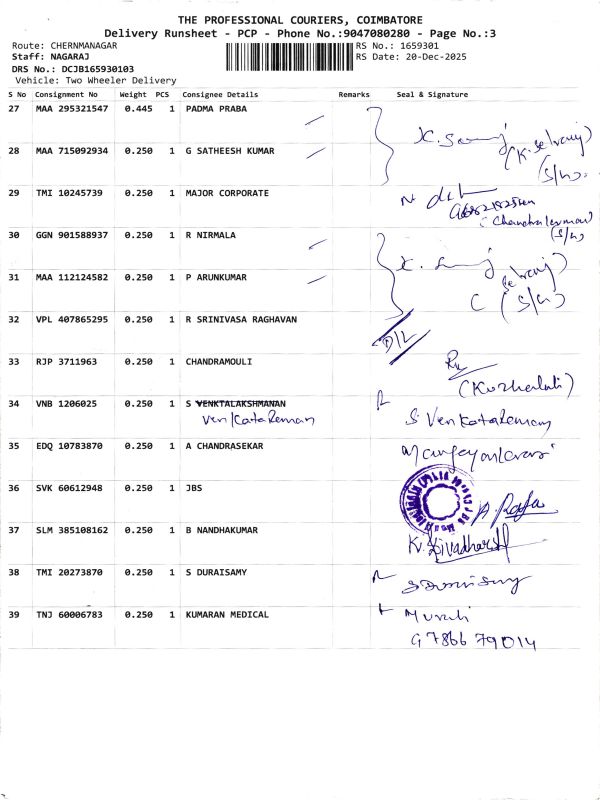 THE PROFESSIONAL COURIERS, COIMBATORE
Delivery Runsheet - PCP - Phone No.:9047080280 - Page No.:3
Route: CHERNMANAGAR RS No.: 1659301
Staff: NAGARAJ RS Date: 20-Dec-2025
DRS No.: DCJB165930103
Vehicle: Two Wheeler Delivery
S No Consignment No Weight PCS Consignee Details Remarks Seal & Signature
27 MAA 295321547 0.445 1 PADMA PRABA
(K. Selvaraj)
28 MAA 715092934 0.250 1 G SATHEESH KUMAR
(S/w)
29 TMI 10245739 0.250 1 MAJOR CORPORATE
(S/w)
30 GGN 901588937 0.250 1 R NIRMALA
Selvaraj)
31 MAA 112124582 0.250 1 P ARUNKUMAR
(S/w)
32 VPL 407865295 0.250 1 R SRINIVASA RAGHAVAN
D/L
33 RJP 3711963 0.250 1 CHANDRAMOULI
34 VNB 1206025 0.250 1 S VENKTALAKSHMANAN
VenKataRaman S VenKataRaman
35 EDQ 10783870 0.250 1 A CHANDRASEKAR
36 SVK 60612948 0.250 1 JBS
A. Raja
37 SLM 385108162 0.250 1 B NANDHAKUMAR
38 TMI 20273870 0.250 1 S DURAISAMY
39 TNJ 60006783 0.250 1 KUMARAN MEDICAL Murali
97866 79014